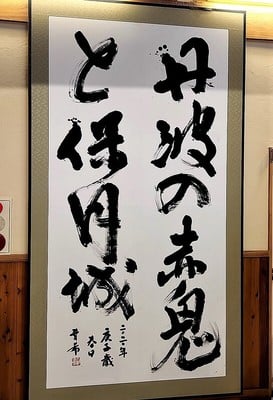 丹波の赤鬼
と保月城
二〇二〇年
庚子歳
春日